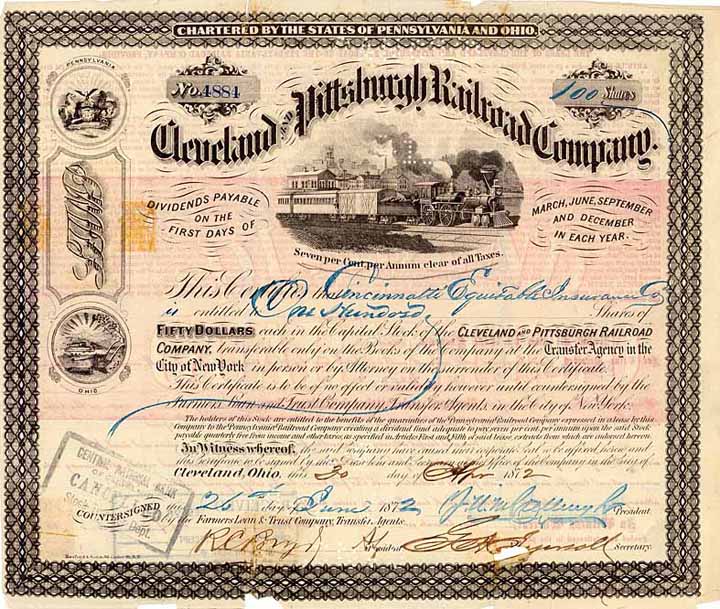 CHARTERED BY THE STATES OF PENNSYLVANIA AND OHIO.
PENNSYLVANIA
No. 4884
100 Shares
Cleveland AND Pittsburgh Railroad Company.
DIVIDENDS PAYABLE
ON THE
FIRST DAYS OF
MARCH, JUNE, SEPTEMBER
AND DECEMBER
IN EACH YEAR.
Seven per Cent. per Annum clear of all Taxes.
This Certifies that Cincinnati Equitable Insurance Co
is entitled to One Hundred Shares of
FIFTY DOLLARS each in the Capital Stock of the CLEVELAND AND PITTSBURGH RAILROAD
COMPANY, transferable only on the Books of the Company at the Transfer Agency in the
City of New York in person or by Attorney on the surrender of this Certificate.
This Certificate is to be of no effect or validity however until countersigned by the
Farmers Loan and Trust Company, Transfer Agents, in the City of New York.
OHIO
The holders of this Stock are entitled to the benefits of the guaranties of the Pennsylvania Railroad Company expressed in a lease by this
Company to the Pennsylvania Railroad Company creating a dividend fund adequate to pay seven per cent. per annum upon the said Stock
payable quarterly free from income and other taxes, as specified in Articles First and Fifth of said lease, extracts from which are endorsed hereon.
In Witness whereof, the said Company have caused their corporate Seal to be affixed hereto and
this Certificate to be signed by the President and Secretary at the Office of the Company in the City of
Cleveland, Ohio, this 20 day of Apr 1872
CENTRAL NATIONAL BANK
CAN
Stock
Dept.
COUNTERSIGNED this 26th day of June 1872
President.
by the Farmers Loan & Trust Company, Transfer Agents.
Secretary.